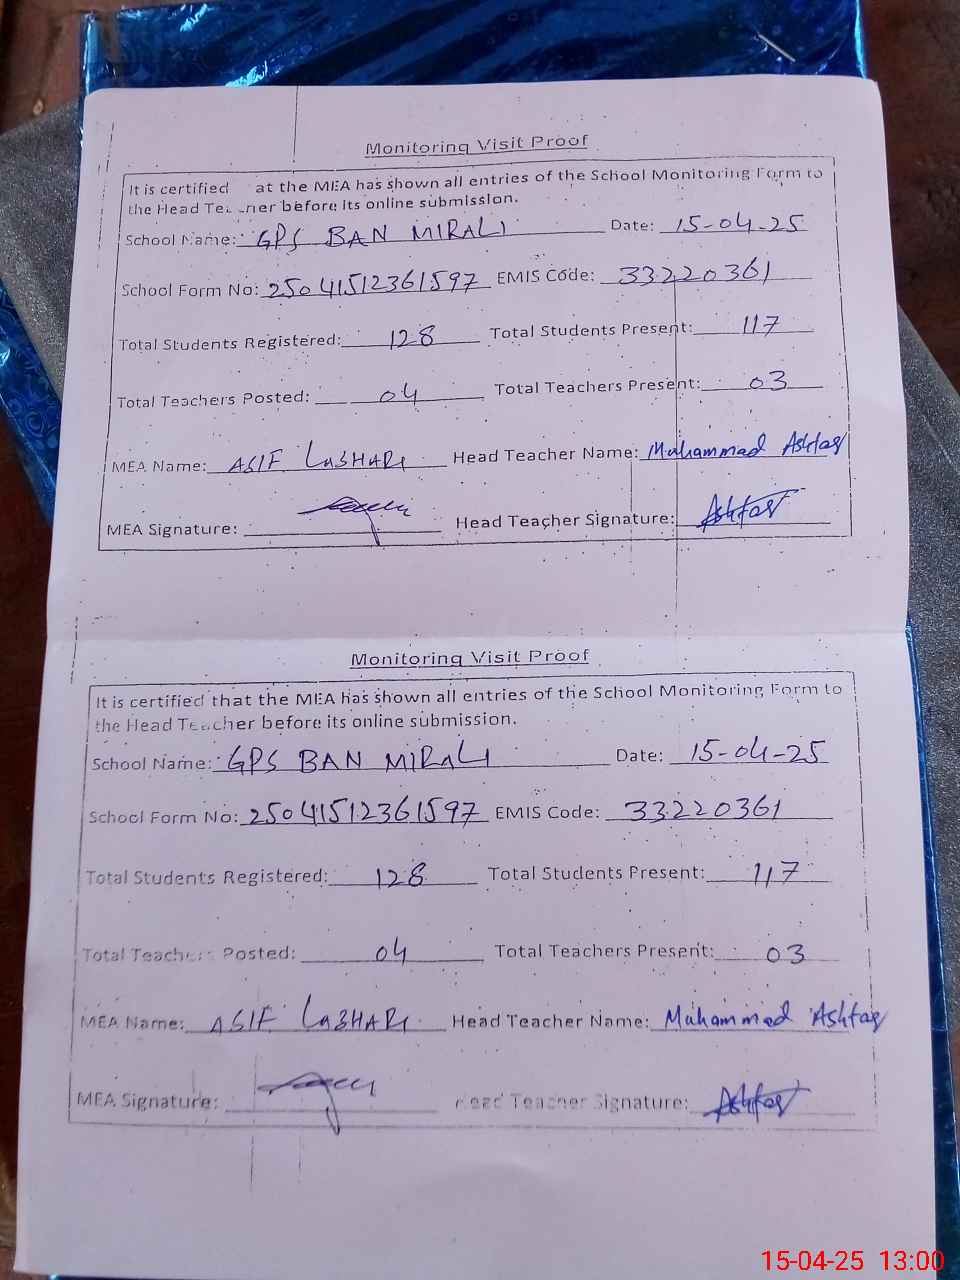 Monitoring Visit Proof
It is certified at the MEA has shown all entries of the School Monitoring Form to
the Head Teacher before its online submission.
School Name: GPS BAN MIRALI Date: 15-04-25
School Form No: 25041512361597 EMIS Code: 33220361
Total Students Registered: 128 Total Students Present: 117
Total Teachers Posted: 04 Total Teachers Present: 03
MEA Name: ASIF LASHARI Head Teacher Name: Muhammad Ashfaq
MEA Signature: Head Teacher Signature: Ashfaq
Monitoring Visit Proof
It is certified that the MEA has shown all entries of the School Monitoring Form to
the Head Teacher before its online submission.
School Name: GPS BAN MIRALI Date: 15-04-25
School Form No: 25041512361597 EMIS Code: 33220361
Total Students Registered: 128 Total Students Present: 117
Total Teachers Posted: 04 Total Teachers Present: 03
MEA Name: ASIF LASHARI Head Teacher Name: Muhammad Ashfaq
MEA Signature: Head Teacher Signature: Ashfaq
15-04-25 13:00